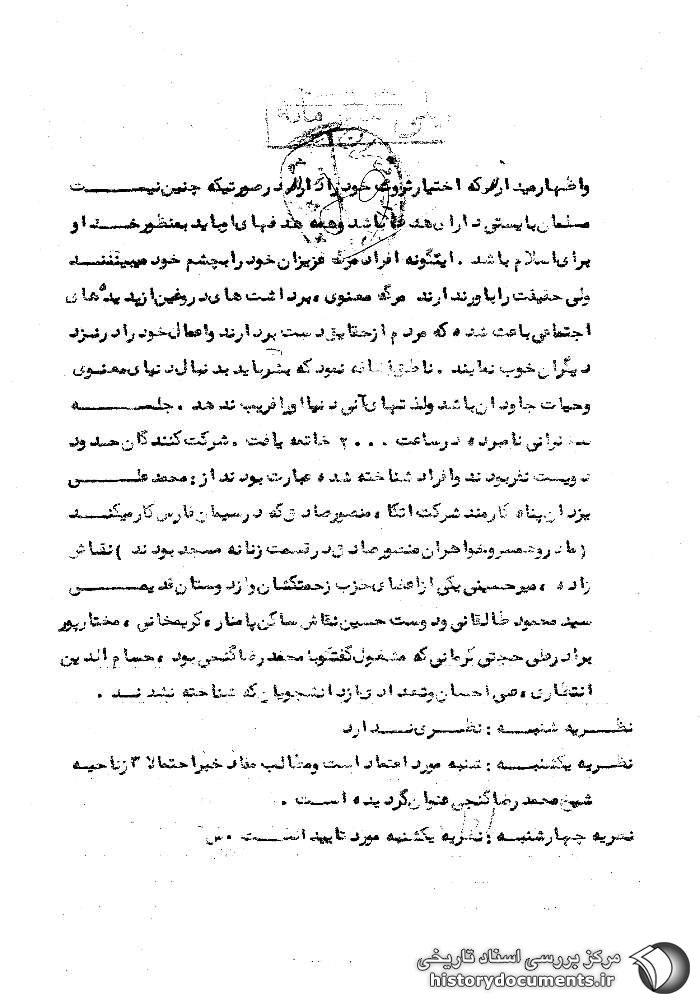 واظهار میدارد که اختیار ثروت خود را ندارد در صورتیکه چنین نیست
مسلمان بایستی دارای هدف باشد وهمه هدفهای او باید بمنظور خدا و
برای اسلام باشد . اینگونه افراد مرگ عزیزان خود را بچشم خود میبینند
ولی حقیقت را باور ندارند مرگ معنوی ، برداشت های دروغین از پدیده های
اجتماعی باعث شده که مردم از حقایق دست بردارند واعمال خود را در نزد
دیگران خوب نمایند . ناطق اضافه نمود که بشر باید بدنبال دنیای معنوی
وحیات جاودان باشد ولذتهای آنی دنیا او را فریب ندهد . جلسه
سخنرانی نامبرده در ساعت ۲۰۰۰ خاتمه یافت . شرکت کنندگان حدود
دویست نفر بودند وافراد شناخته شده عبارت بودند از : محمد علی
یزدان پناه کارمند شرکت اتکا ، منصور صادق که در سیمان فارس کار میکند
( مادر وهمسر وخواهران منصور صادق در قسمت زنانه مسجد بودند ) نقاش
زاده ، میرحسینی یکی از اعضای حزب زحمتکشان واز دوستان قدیمی
سید محمود طالقانی ودوست حسین نقاش ساکن پامنار ، کریمخانی ، مختارپور
برادر علی حجتی کرمانی که مشغول گفتگو با محمد رضا گنجی بود ، حسام الدین
انتظاری ، احسان وتعدادی از دانشجویان که شناخته نشدند .
نظریه شنبه : نظری ندارد
نظریه یکشنبه : شنبه مورد اعتماد است ومطالب مفاد خبر احتمالا از ناحیه
شیخ محمد رضا گنجی عنوان گردیده است .
نظریه چهارشنبه : نظریه یکشنبه مورد تایید است .
مرکز بررسی اسناد تاریخی
historydocuments.ir